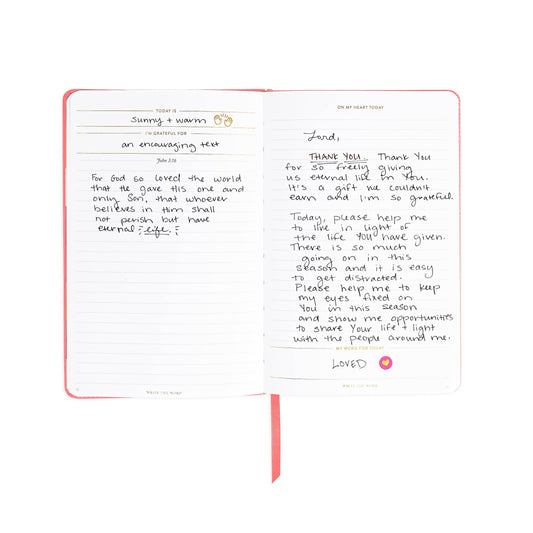 TODAY IS
sunny + warm
I'M GRATEFUL FOR
an encouraging text
John 3:16
For God so loved the world
that He gave His one and
only Son, that whoever
believes in Him shall
not perish but have
eternal life.
WRITE THE WORD
ON MY HEART TODAY
Lord,
THANK YOU.. Thank You
for so freely giving
us eternal life in You.
It's a gift we couldn't
earn and I'm so grateful.
Today, please help me
to live in light of
the life You have given.
There is so much
going on in this
season and it is easy
to get distracted.
Please help me to keep
my eyes fixed on
You in this season
and show me opportunities
to share Your life + light
with the people around me.
MY WORD FOR TODAY
LOVED
WRITE THE WORD